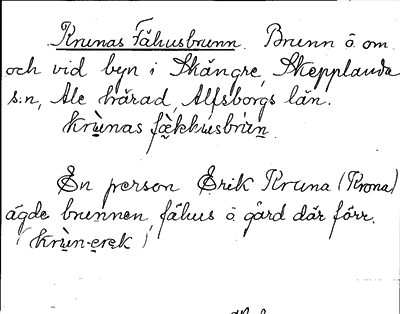 Krunas Fähusbrunn. Brunn ö om
och vid byn i Skångre, Skepplanda
s:n, Ale härad, Älfsborgs län.
krùnas fækkùsbrùn

En person Erik Kruna (Krona)
ägde brunnen, fähus å gård där förr.
(krùn-erek)